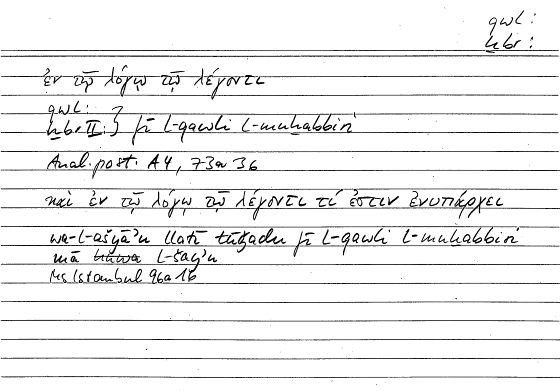 qwl:
ẖbr:
ἐν τῷ λόγῳ τῷ λέγοντι
qwl:
ẖbr II: } fī l-qawli l-muẖabbiri
Anal. post. A4, 73a36
καὶ ἐν τῷ λόγῳ τῷ λέγοντι τί ἐστιν ἐνυπάρχει
wa-l-ašyāʾu llatī tūǧadu fī l-qawli l-muẖabbiri
mā huwa l-šayʾu
Ms Istanbul 96a16